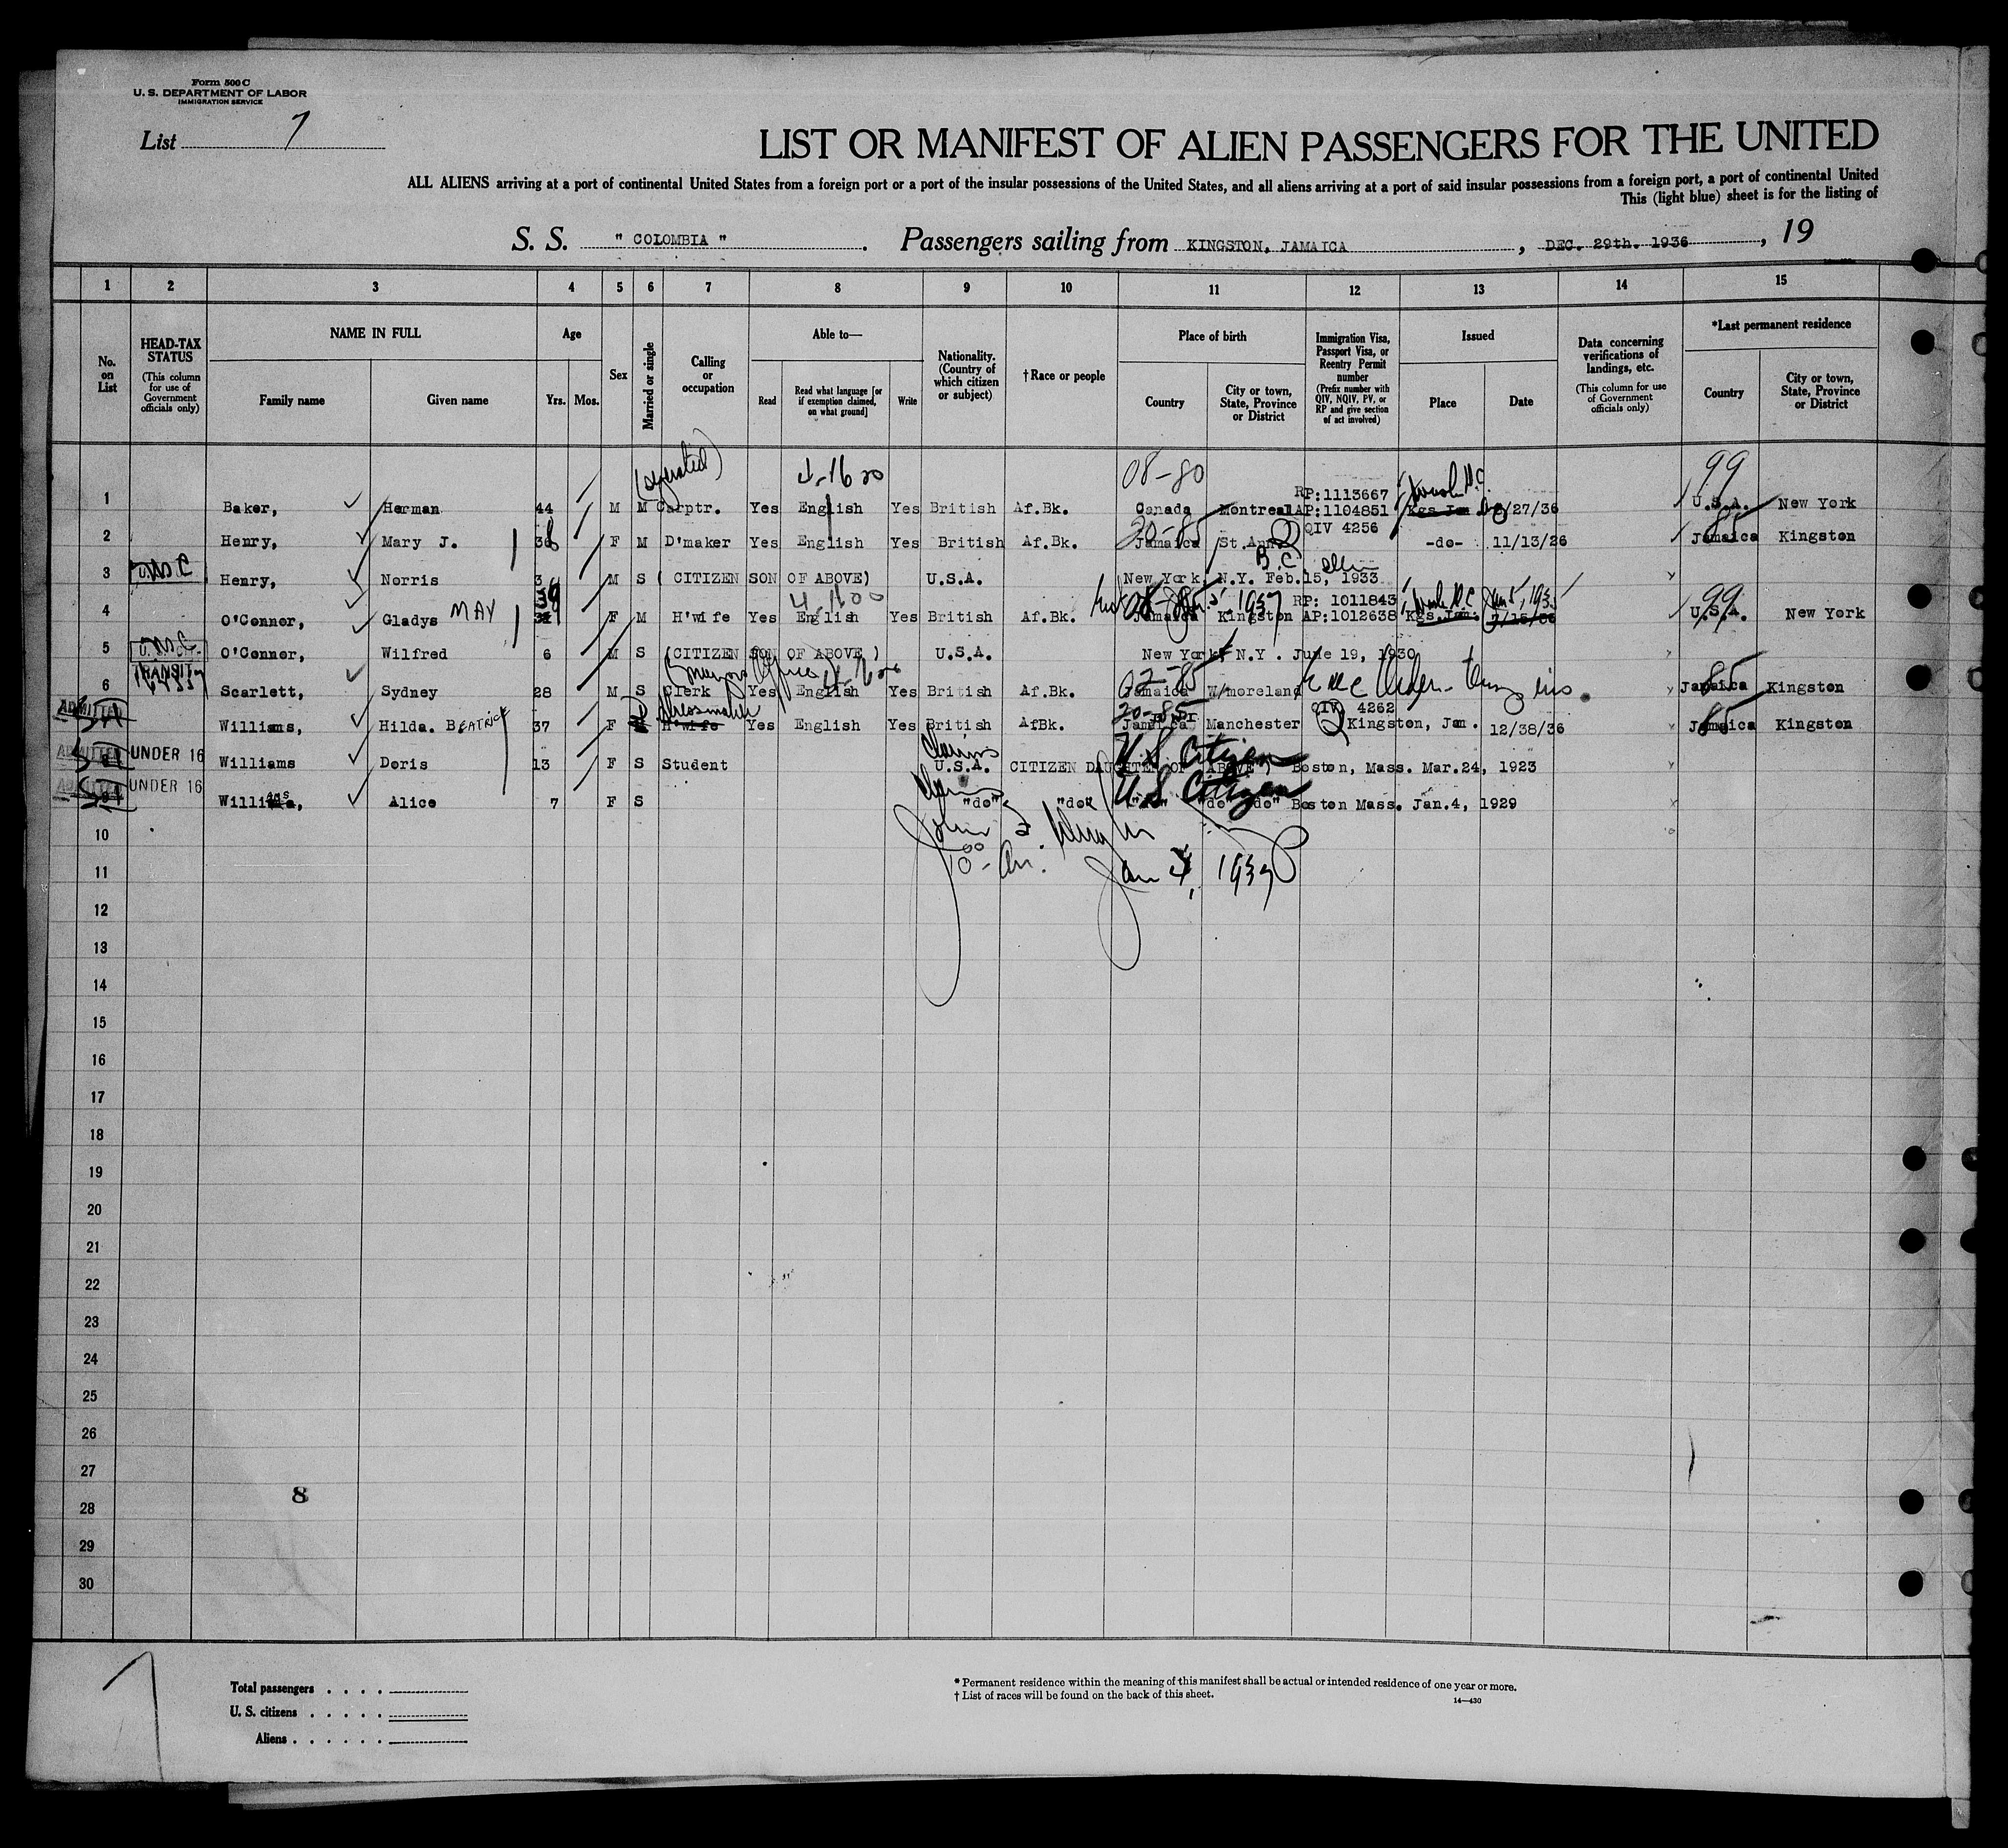 Form 500 C
U. S. DEPARTMENT OF LABOR
IMMIGRATION SERVICE
List 7
LIST OR MANIFEST OF ALIEN PASSENGERS FOR THE UNITED
ALL ALIENS arriving at a port of continental United States from a foreign port or a port of the insular possessions of the United States, and all aliens arriving at a port of said insular possessions from a foreign port, a port of continental United
This (light blue) sheet is for the listing of
S. S. " COLOMBIA " . Passengers sailing from KINGSTON, JAMAICA , DEC. 29th. 1936 , 19
1 2 3 4 5 6 7 8 9 10 11 12 13 14 15
No. on List
HEAD-TAX STATUS (This column for use of Government officials only)
NAME IN FULL Family name Given name
Age Yrs. Mos.
Sex
Married or single
Calling or occupation
Able to— Read Read what language [or if exemption claimed, on what ground] Write
Nationality. (Country of which citizen or subject)
†Race or people
Place of birth Country City or town, State, Province or District
Immigration Visa, Passport Visa, or Reentry Permit number (Prefix number with QIV, NQIV, PV, or RP and give section of act involved)
Issued Place Date
Data concerning verifications of landings, etc. (This column for use of Government officials only)
*Last permanent residence Country City or town, State, Province or District
(separated) 4-1620 08-80 99
RP:1113667 Wash D.C.
1 Baker, Herman 44 M M Carptr. Yes English Yes British Af.Bk. Canada Montreal AP:1104851 Kgs.Jam. /27/36 U.S.A. New York
20-85 QIV 4256 85
2 Henry, Mary J. 36 F M D'maker Yes English Yes British Af.Bk. Jamaica St.Ann -do- 11/13/26 Jamaica Kingston
B.C.
3 U.S.C Henry, Norris 3 M S ( CITIZEN SON OF ABOVE) U.S.A. New York N.Y. Feb.15, 1933
39 4-1620 1937 RP: 1011843 Wash D.C. Jan 5, 193 99
4 O'Conner, Gladys MAY F M H'wife Yes English Yes British Af.Bk. Jamaica Kingston AP:1012638 Kgs.Jam. 7/15/36 U.S.A. New York
5 U.S.C O'Conner, Wilfred 6 M S (CITIZEN SON OF ABOVE ) U.S.A. New York, N.Y . June 19, 1930
TRANSIT 02-85 85
6 Scarlett, Sydney 28 M S Clerk Yes English Yes British Af.Bk. Jamaica W/moreland Jamaica Kingston
ADMITTED Dressmaker 20-85 QIV 4262 85
Williams, Hilda. BEATRICE 37 F H'wife Yes English Yes British AfBk. Jamaica Manchester Kingston, Jam. 12/38/36 Jamaica Kingston
ADMITTED UNDER 16 Claims U S Citizen
Williams Doris 13 F S Student U.S.A. CITIZEN DAUGHTER OF ABOVE) Boston, Mass. Mar.24, 1923
ADMITTED UNDER 16 Claims U S Citizen
Williams, Alice 7 F S "do" "do" "do" "do" Boston Mass. Jan.4, 1929
10
11 Jan 4, 1937
12
13
14
15
16
17
18
19
20
21
22
23
24
25
26
27
8
28
29
30
7
Total passengers . . . .
U. S. citizens . . . . .
Aliens . . . . . .
* Permanent residence within the meaning of this manifest shall be actual or intended residence of one year or more.
† List of races will be found on the back of this sheet.
14—430